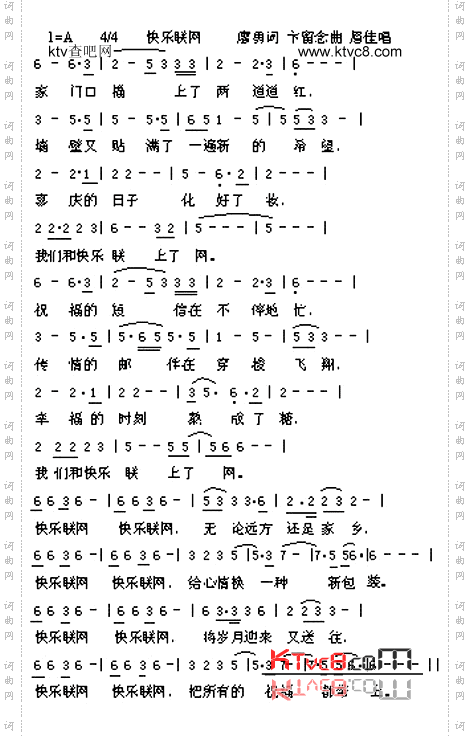 1=A 4/4 快乐联网 廖勇词 卞留念曲 周佳唱
ktv查吧网 www.ktvc8.com
6 - 6·3 | 2 - 5 3 3 3 | 2 - 2·3 | 6 - - - |
家 门口 福 上了 两 道道 红,
3 - 5·5 | 5 - 5·5 | 6 5 1 - 5 | 5 5 3 3 - |
墙 壁又 贴 满了 一遍新 的 希 望,
2 - 2·1 | 2 2 - - | 5 - 6·2 | 2 - - - |
喜 庆的 日子 化 好了 妆,
2 2·2 2 3 | 6 - - 3 2 | 5 - - - | 5 - - - |
我们和快乐 联 上了 网。
6 - 6·3 | 2 - 5 3 3 3 | 2 - 2·3 | 6 - - - |
祝 福的 短 信在 不 停地 忙,
3 - 5·5 | 5·6 5 5·5 | 1 - 5 - | 5 3 - - |
传 情的 邮 件在 穿 梭 飞 翔,
2 - 2·1 | 2 2 - - | 3 5· 6·2 | 2 - - - |
幸 福的 时刻 熬 成了 糖,
2 2 2 2 3 | 5 - - 5 5 | 5 6 6 - - |
我 们和快乐 联 上了 网。
6 6 3 6 - | 6 6 3 6 - | 5 3 3 3·6 | 2·2 2 3 2 - |
快乐联网 快乐联网, 无 论远方 还是 家 乡,
6 6 3 6 - | 6 6 3 6 - | 3 2 3 5 | 5·3 7 - | 7·5 5 6· - | - - - - |
快乐联网 快乐联网, 给心情换 一种 新包 装。
6 6 3 6 - | 6 6 3 6 - | 6 3·3 3 6 | 2 2 3 3 - |
快乐联网 快乐联网, 将岁月迎来 又送 往,
6 6 3 6 - | 6 6 3 6 - | 3 2 3 5 | 5·3
快乐联网 快乐联网, 把所有的 祝福 都带 上。
KTvc8.com
词曲网